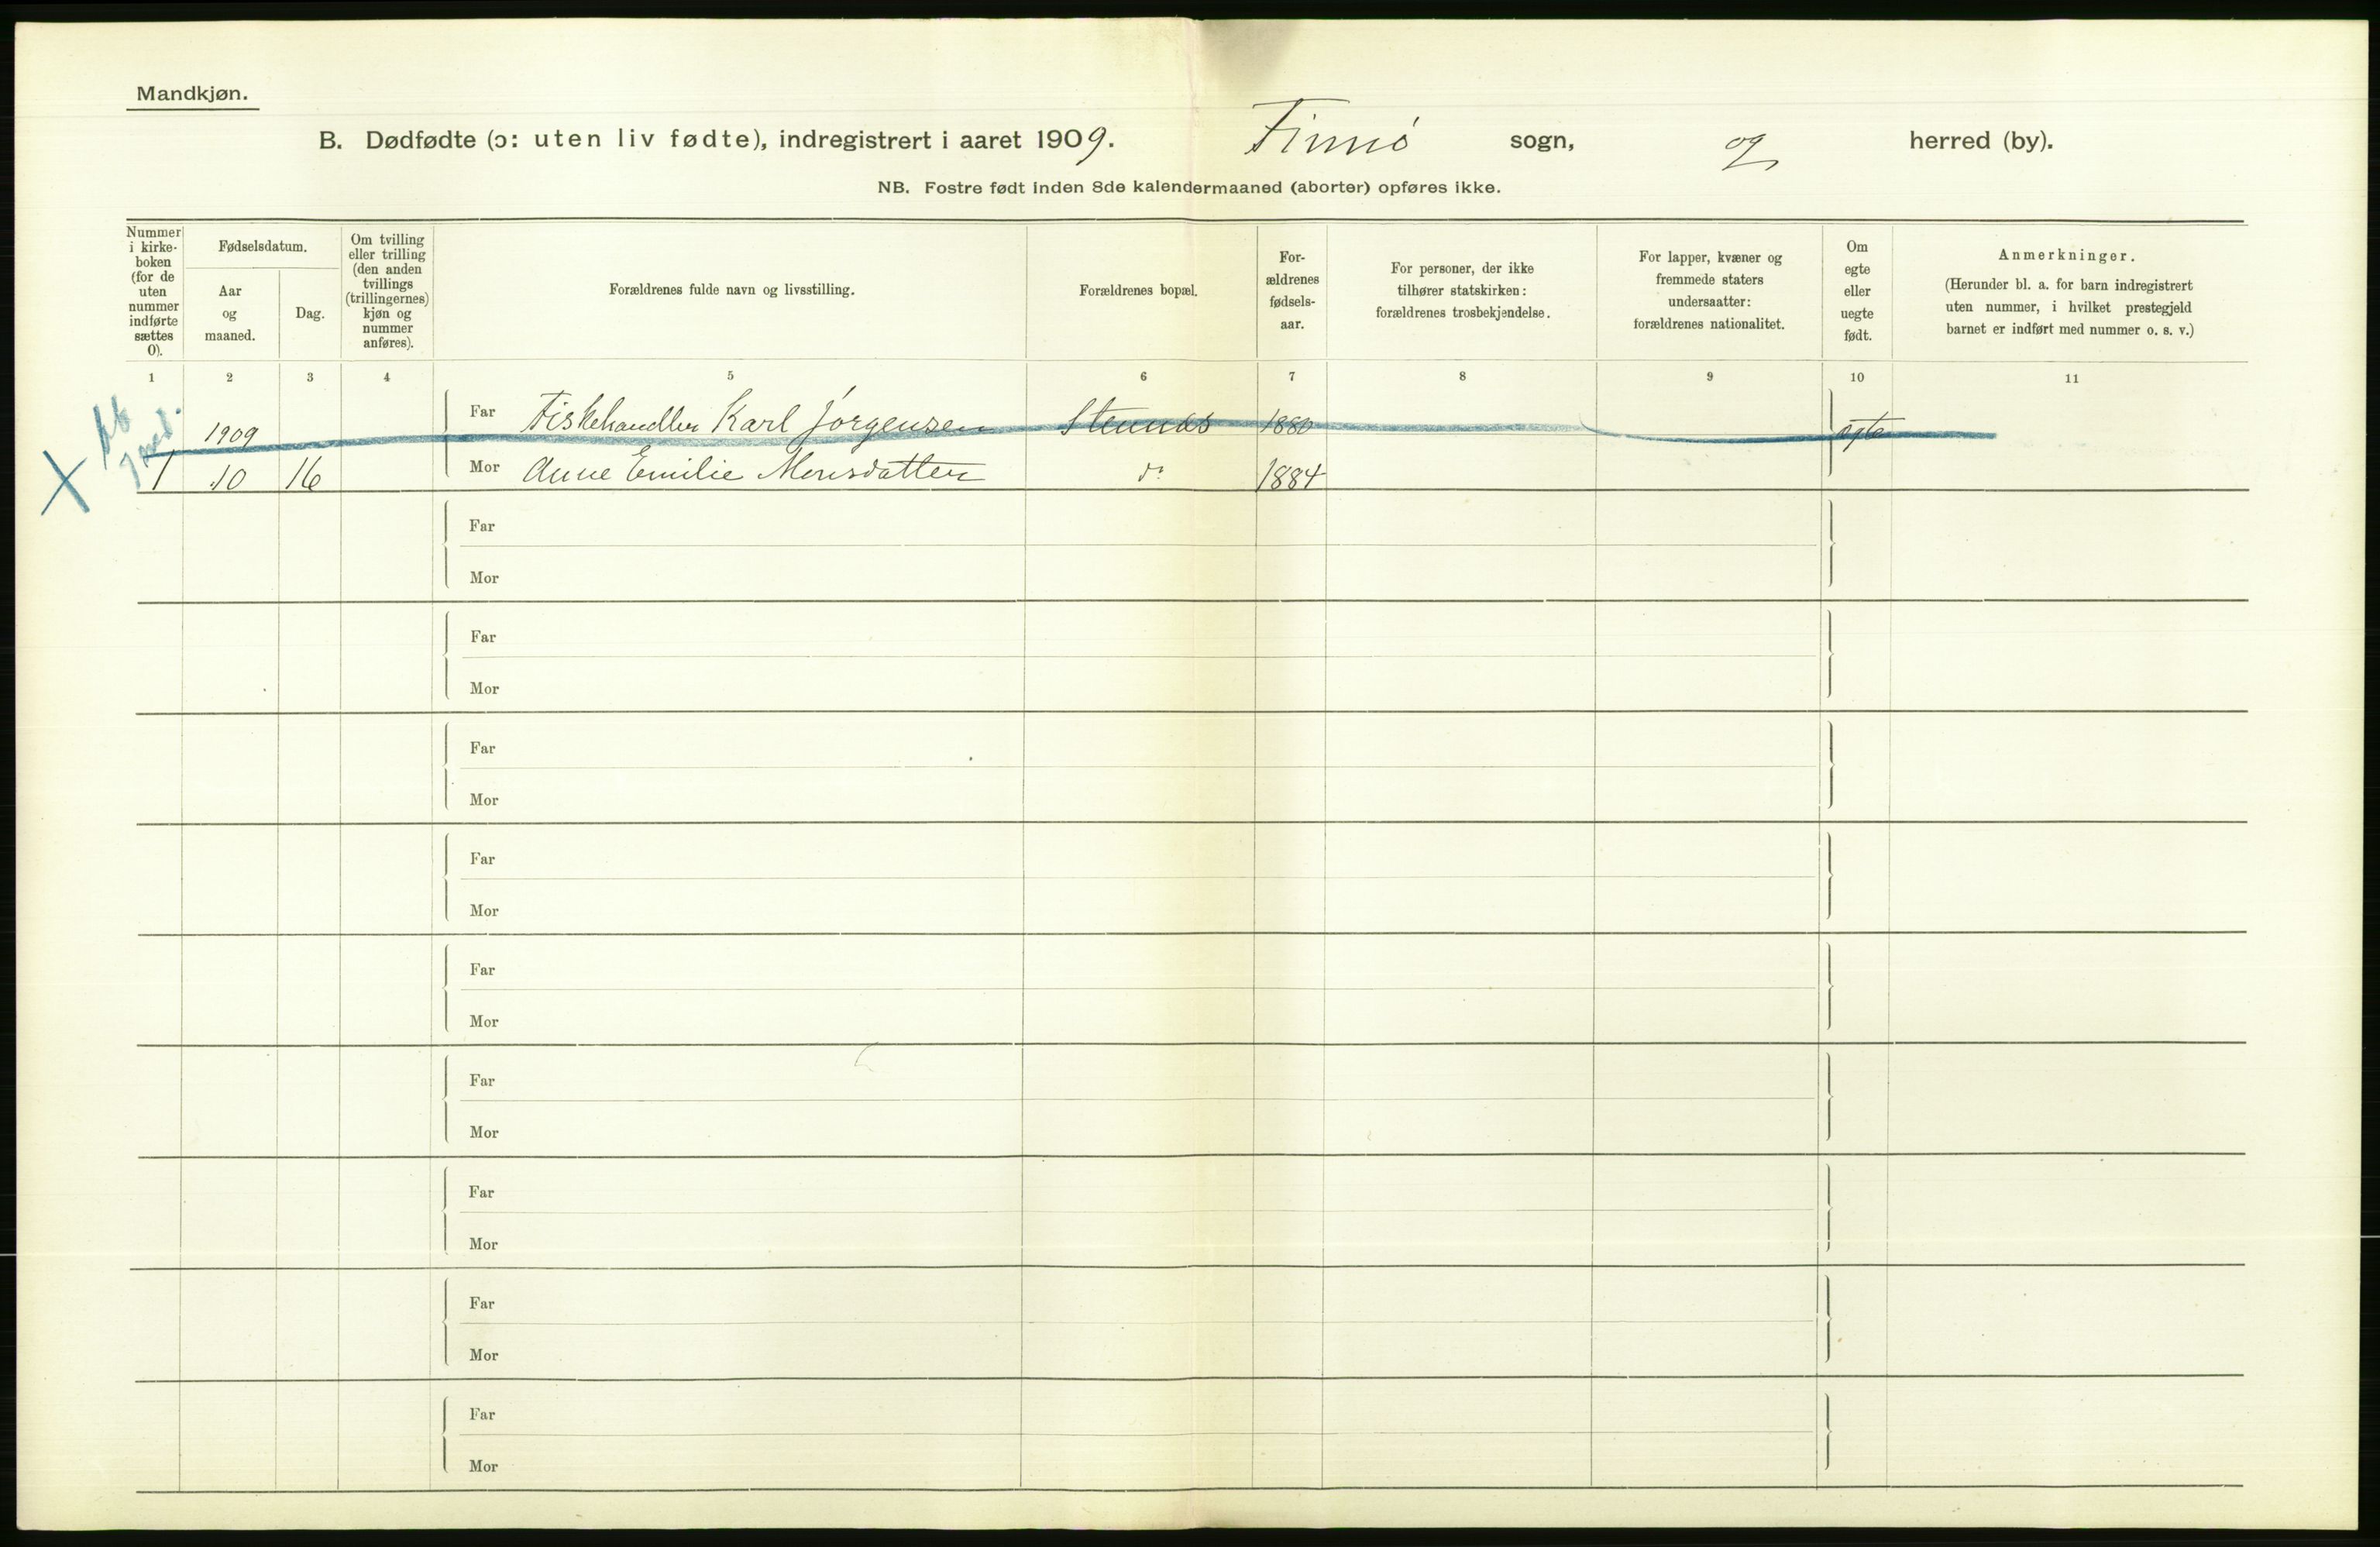 Mandkjøn.
B. Dødfødte (ɔ: uten liv fødte), indregistrert i aaret 1909. Finnö sogn, og herred (by).
NB. Fostre født inden 8de kalendermaaned (aborter) opføres ikke.
Nummer i kirke-boken (for de uten nummer indførte sættes 0).
Fødselsdatum.
Aar og maaned.
Dag.
Om tvilling eller trilling (den anden tvillings (trillingernes) kjøn og nummer anføres).
Forældrenes fulde navn og livsstilling.
Forældrenes bopæl.
For-ældrenes fødsels-aar.
For personer, der ikke tilhører statskirken: forældrenes trosbekjendelse.
For lapper, kvæner og fremmede staters undersaatter: forældrenes nationalitet.
Om egte eller uegte født.
Anmerkninger.
(Herunder bl. a. for barn indregistrert uten nummer, i hvilket prestegjeld barnet er indført med nummer o. s. v.)
1 2 3 4 5 6 7 8 9 10 11
1909 Far Fiskehandler Karl Jörgensen 1880 egte
X 1 10 16 Mor Anne Emilie Monsdatter do 1884
Far
Mor
Far
Mor
Far
Mor
Far
Mor
Far
Mor
Far
Mor
Far
Mor
Far
Mor
Far
Mor